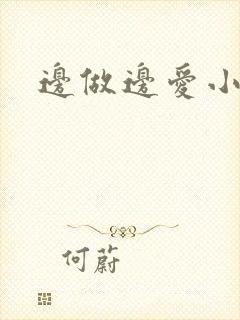 邊做邊愛小
何蔚